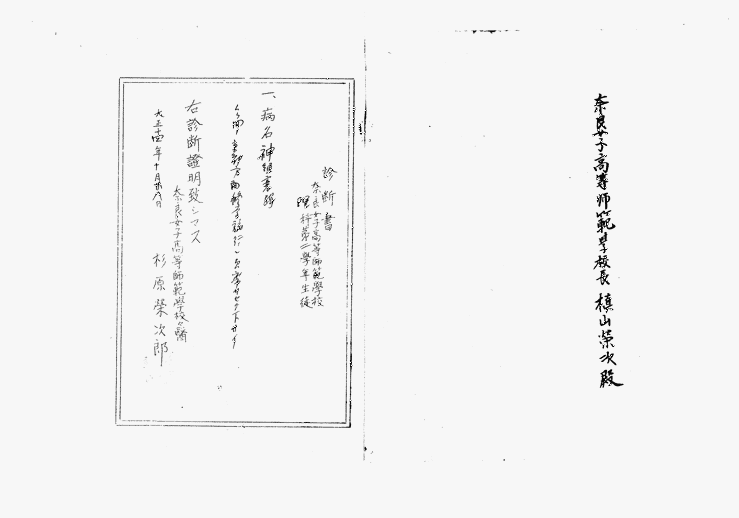 奈良女子高等師範學校長 槇山榮次殿
診断書
奈良女子高等師範學校
理科第二學年生徒
一、病名 神經衰弱
右診断證明致シマス
大正十四年十月廿八日
奈良女子高等師範學校々醫
杉原榮次郎